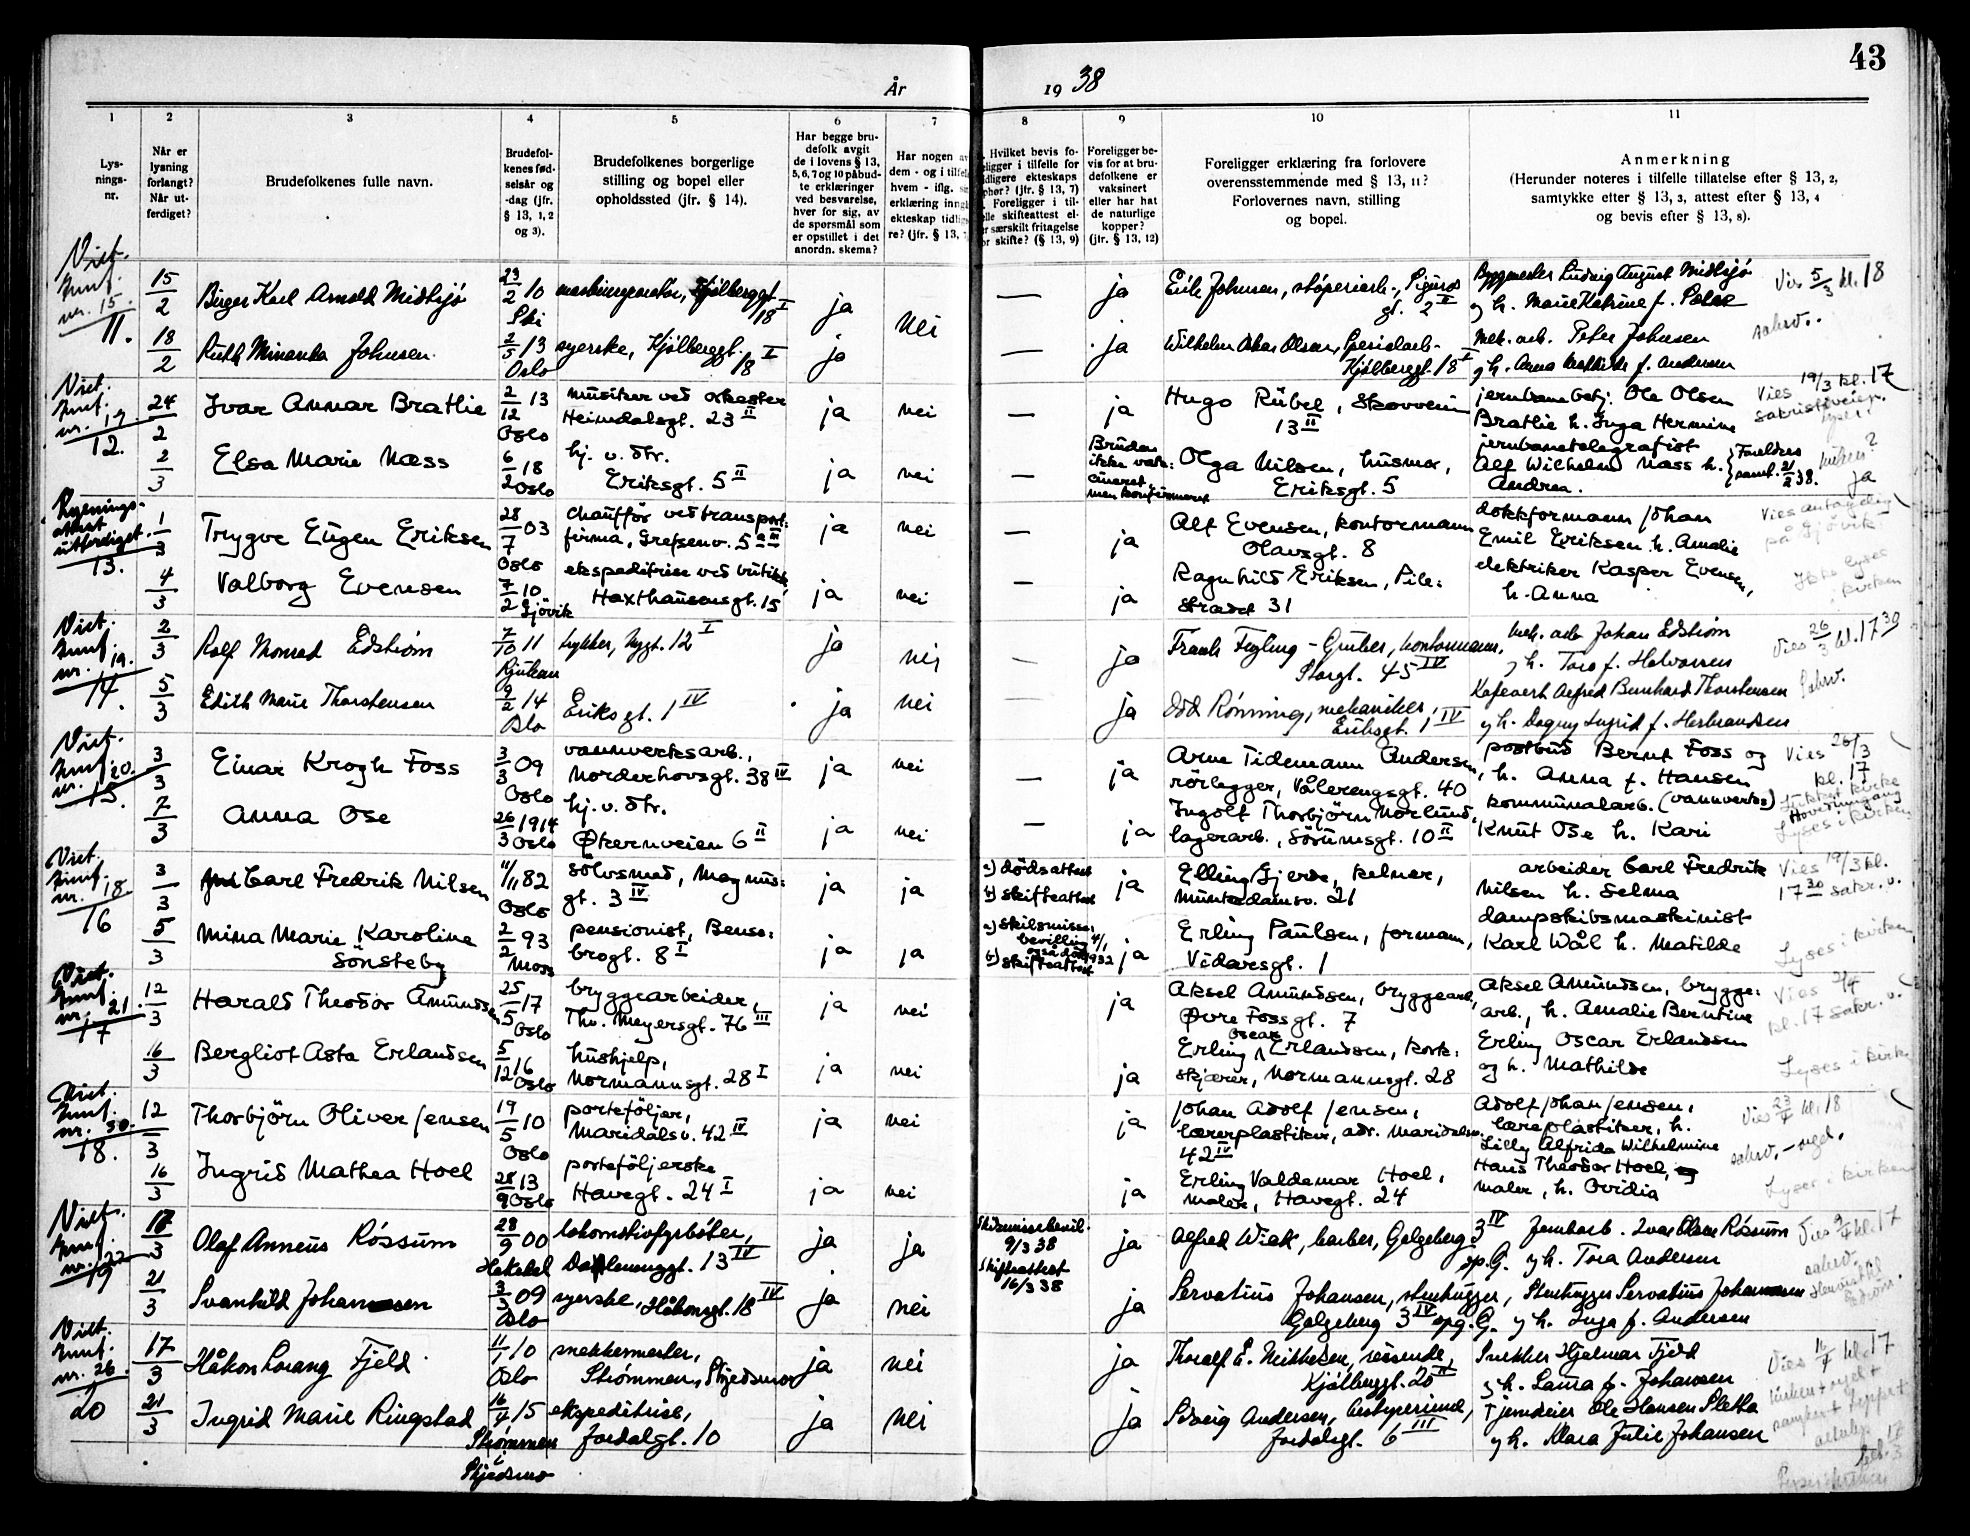 43
År 1938
1 2 3 4 5 6 7 8 9 10 11
Lys-
nings-
nr.
Når er
lysning
forlangt?
Når ut-
ferdiget?
Brudefolkenes fulle navn.
Brudefol-
kenes fød-
selsår og
-dag (jfr.
§ 13, 1, 2
og 3).
Brudefolkenes borgerlige
stilling og bopel eller
opholdssted (jfr. § 14).
Har begge bru-
defolk avgit
de i lovens § 13,
5, 6, 7 og 10 påbud-
te erklæringer
ved besvarelse,
hver for sig, av
de spørsmål som
er opstillet i det
anordn. skema?
Har nogen av
dem - og i tilfelle
hvem - iflg. sin
erklæring inngå
ekteskap tidlig
re? (jfr. § 13,
Hvilket bevis fo-
ligger i tilfelle for
tidligere ekteskaps
ophør? (jfr. § 13, 7)
Foreligger i til-
felle skifteattest el-
er særskilt fritagelse
for skifte? (§ 13, 9)
Foreligger be-
vis for at bru-
defolkene er
vaksinert
eller har hat
de naturlige
kopper?
(jfr. § 13, 12)
Foreligger erklæring fra forlovere
overensstemmende med § 13, 11?
Forlovernes navn, stilling
og bopel.
Anmerkning
(Herunder noteres i tilfelle tillatelse efter § 13, 2,
samtykke efter § 13, 3, attest efter § 13, 4
og bevis efter § 13, 8).
Viet.
nr. 15.
11.
15/2 Birger Karl Arnold Midtsjø 23/2 10 Ski Kjølberggt. 18 I ja nei — ja Erik Johnsen, støperiarb., Sigurds gt. 2 II
Byggmester Ludvig August Midtsjø
og h. Marie Katrine f.
Vies 5/3 kl. 18
sakrv.
18/2 Ruth Miranda Johnsen 2/5 13 Oslo syerske, Kjølberggt. 18 I ja — ja Wilhelm Oskar Olsen, Kjølberggt. 18 I
mek. arb. Peter Johnsen
og h. Anna Mathilde f. Andersen
Viet.
nr. 17.
12.
24/2 Ivar Annar Bratlie 2/12 13 Oslo musiker ved orkester
Heimdalsgt. 23 II ja nei — ja Hugo Rübel, Skovveien
13 II
jernbanebetj. Ole Olsen
Bratlie h. Inga Hermine
Vies 19/3 kl. 17
2/3 Elsa Marie Næss 6/2 18 Oslo hj. v. dtr.
Eriksgt. 5 II ja nei —
Bruden
ikke vak-
cineret
men konfirmeret
Olga Nilsen, husmor,
Eriksgt. 5
jernbanetelegrafist
Alf Wilhelm Næss h.
Andrea.
Foreldres
samt. 21/2 38.
ja
Lysnings-
attest
utferdiget.
13.
1/3 Trygve Eugen Eriksen 28/7 03 Oslo chauffør ved transport-
firma, Grefsenv. 5 a III ja nei — ja Alf Evensen, kontormann
Olavsgt. 8
dokkformann Johan
Emil Eriksen h. Amalie
Vies antagelig
på Gjøvik
4/3 Valborg Evensen 7/2 10 Gjøvik ekspeditrise ved butikk,
Haxthausensgt. 15 ja nei — ja Ragnhild Eriksen, Pile-
stredet 31
elektriker Kasper Evensen,
h. Anna
Ikke lyses
i kirken
Viet.
nr. 19.
14.
2/3 Rolf Monrad Edstrøm 7/10 11 Rjukan trykker, Nygt. 12 I ja nei — ja Frank Figling-Gruber, kontormann,
Storgt. 45 IV
mek. arb. Johan Edstrøm
og h. Tora f. Halvorsen
Vies 26/3 kl. 17 30
Sakrv.
5/3 Edith Marie Thorstensen 9/2 14 Oslo Eriksgt. 1 IV ja nei — ja Odd Rønning, mekaniker,
Eriksgt. 1 IV
Kafevert Alfred Bernhard Thorstensen
og h. Dagny Ingrid f. Herbrandsen
Viet.
nr. 20.
15.
3/3 Einar Krogh Foss 3/3 09 Oslo vannverksarb.,
Norderhovsgt. 38 IV ja nei — ja Arne Tidemann Andersen,
rørlegger, Vålerengsgt. 40
postbud Bernt Foss og
h. Anna f. Hansen
Vies 26/3
kl. 17
7/3 Anna Ose 26/3 1914 Oslo hj. v. dtr.
Økernveien 6 II ja nei — ja Ingolf Thorbjørn Norlund,
lagerarb., Sörumsgt. 10 II
kommunalarb. (vannverks)
Knut Ose h. Kari
Hovedinngang
Lyses i kirken
Viet.
nr. 18.
16
3/3 Carl Fredrik Nilsen 11/11 82 Oslo sölvsmed, Magnus-
gt. 3 IV ja ja
a) dödsattest
b) skifteattest
ja Elling Gjerde, kelner,
Munkedamsv. 21
arbeider Carl Fredrik
Nilsen h. Selma
Vies 19/3 kl.
17 30 sakr. v.
5/3 Mina Marie Karoline
Sönsteby 2/2 93 Moss pensionist, Benne-
brogt. 8 I ja ja
a) skilsmisse-
bevilling
b) skifteattest
ja Erling Paulsen, formann,
Vidarsgt. 1
dampskibsmaskinist
Karl Wål h. Matilde
Lyses i kirken
Viet.
nr. 21.
17
12/3 Harald Theodor Amundsen 25/5 17 Oslo bryggearbeider,
Thv. Meyersgt. 76 III ja nei ja Aksel Amundsen, bryggearb.,
Øvre Fossgt. 7
Aksel Amundsen, brygge-
arb., h. Amalie Berntine
Vies 2/4
kl. 17 sakr. v.
16/3 Bergliot Asta Erlandsen 5/12 16 Oslo hushjelp,
Normannsgt. 28 I ja nei ja Erling Oscar Erlandsen, kork-
skjærer, Normannsgt. 28
Erling Oscar Erlandsen
og h. Mathilde
Lyses i kirken
Viet.
nr. 30.
18.
12/3 Thorbjörn Oliver Jensen 19/5 10 Oslo porteföljer,
Maridalsv. 42 IV ja nei ja Johan Adolf Jensen,
lærerplastiker, adr. Maridalsv.
42 IV
Adolf Johan Jensen,
læreplastiker, h.
Lilly Alfrida Wilhelmine
Vies 23/4 kl. 18
sakrv. - orgel.
16/3 Ingrid Mathea Hoel 28/9 13 Oslo porteföljerske
Havegt. 24 I ja nei ja Erling Valdemar Hoel,
maler, Havegt. 24
Hans Theodor Hoel,
maler, h. Ovidia
Lyses i kirken
Viet.
nr. 22
19
17/3 Olaf Anneus Róssum 28/9 00 lokomotivfyrbøter,
Dælenenggt. 13 IV ja ja
Skilsmissebevil.
9/3 38
Skifteattest
16/3 38
ja Alfred Wiak, barber, Galgeberg 3 IV
op. G.
Jernbarb. Ivar Olsen Róssum
og h. Tora Andersen
Vies 9/4 kl. 17
sakrv.
21/3 Svanhild Johansen 3/3 09 Oslo syerske, Håkonsgt. 18 IV ja nei ja Servatius Johansen, stenhugger,
Galgeberg 3 IV opg. G.
Stenhugger Servatius Johansen
og h. Inga f. Andersen
Viet.
nr. 26.
20
17/3 Håkon Lorang Fjeld 11/1 10 Oslo snekkermester,
Strømmen, Skjedsmo ja nei ja Thoralf E. Mikkelsen, reisende,
Kjølberggt. 20 IV
Snekker Hjalmar Fjeld
og h. Laura f. Johansen
Vies 16/4 kl. 17
21/3 Ingrid Marie Ringstad 16/4 15 Strømmen
i
Skjedsmo
ekspeditrise,
Jordalgt. 10 ja nei ja Solveig Andersen,
Jordalgt. 6 III
Gjerdeier Ole Hansen Sletta
og h. Klara Julie Johansen